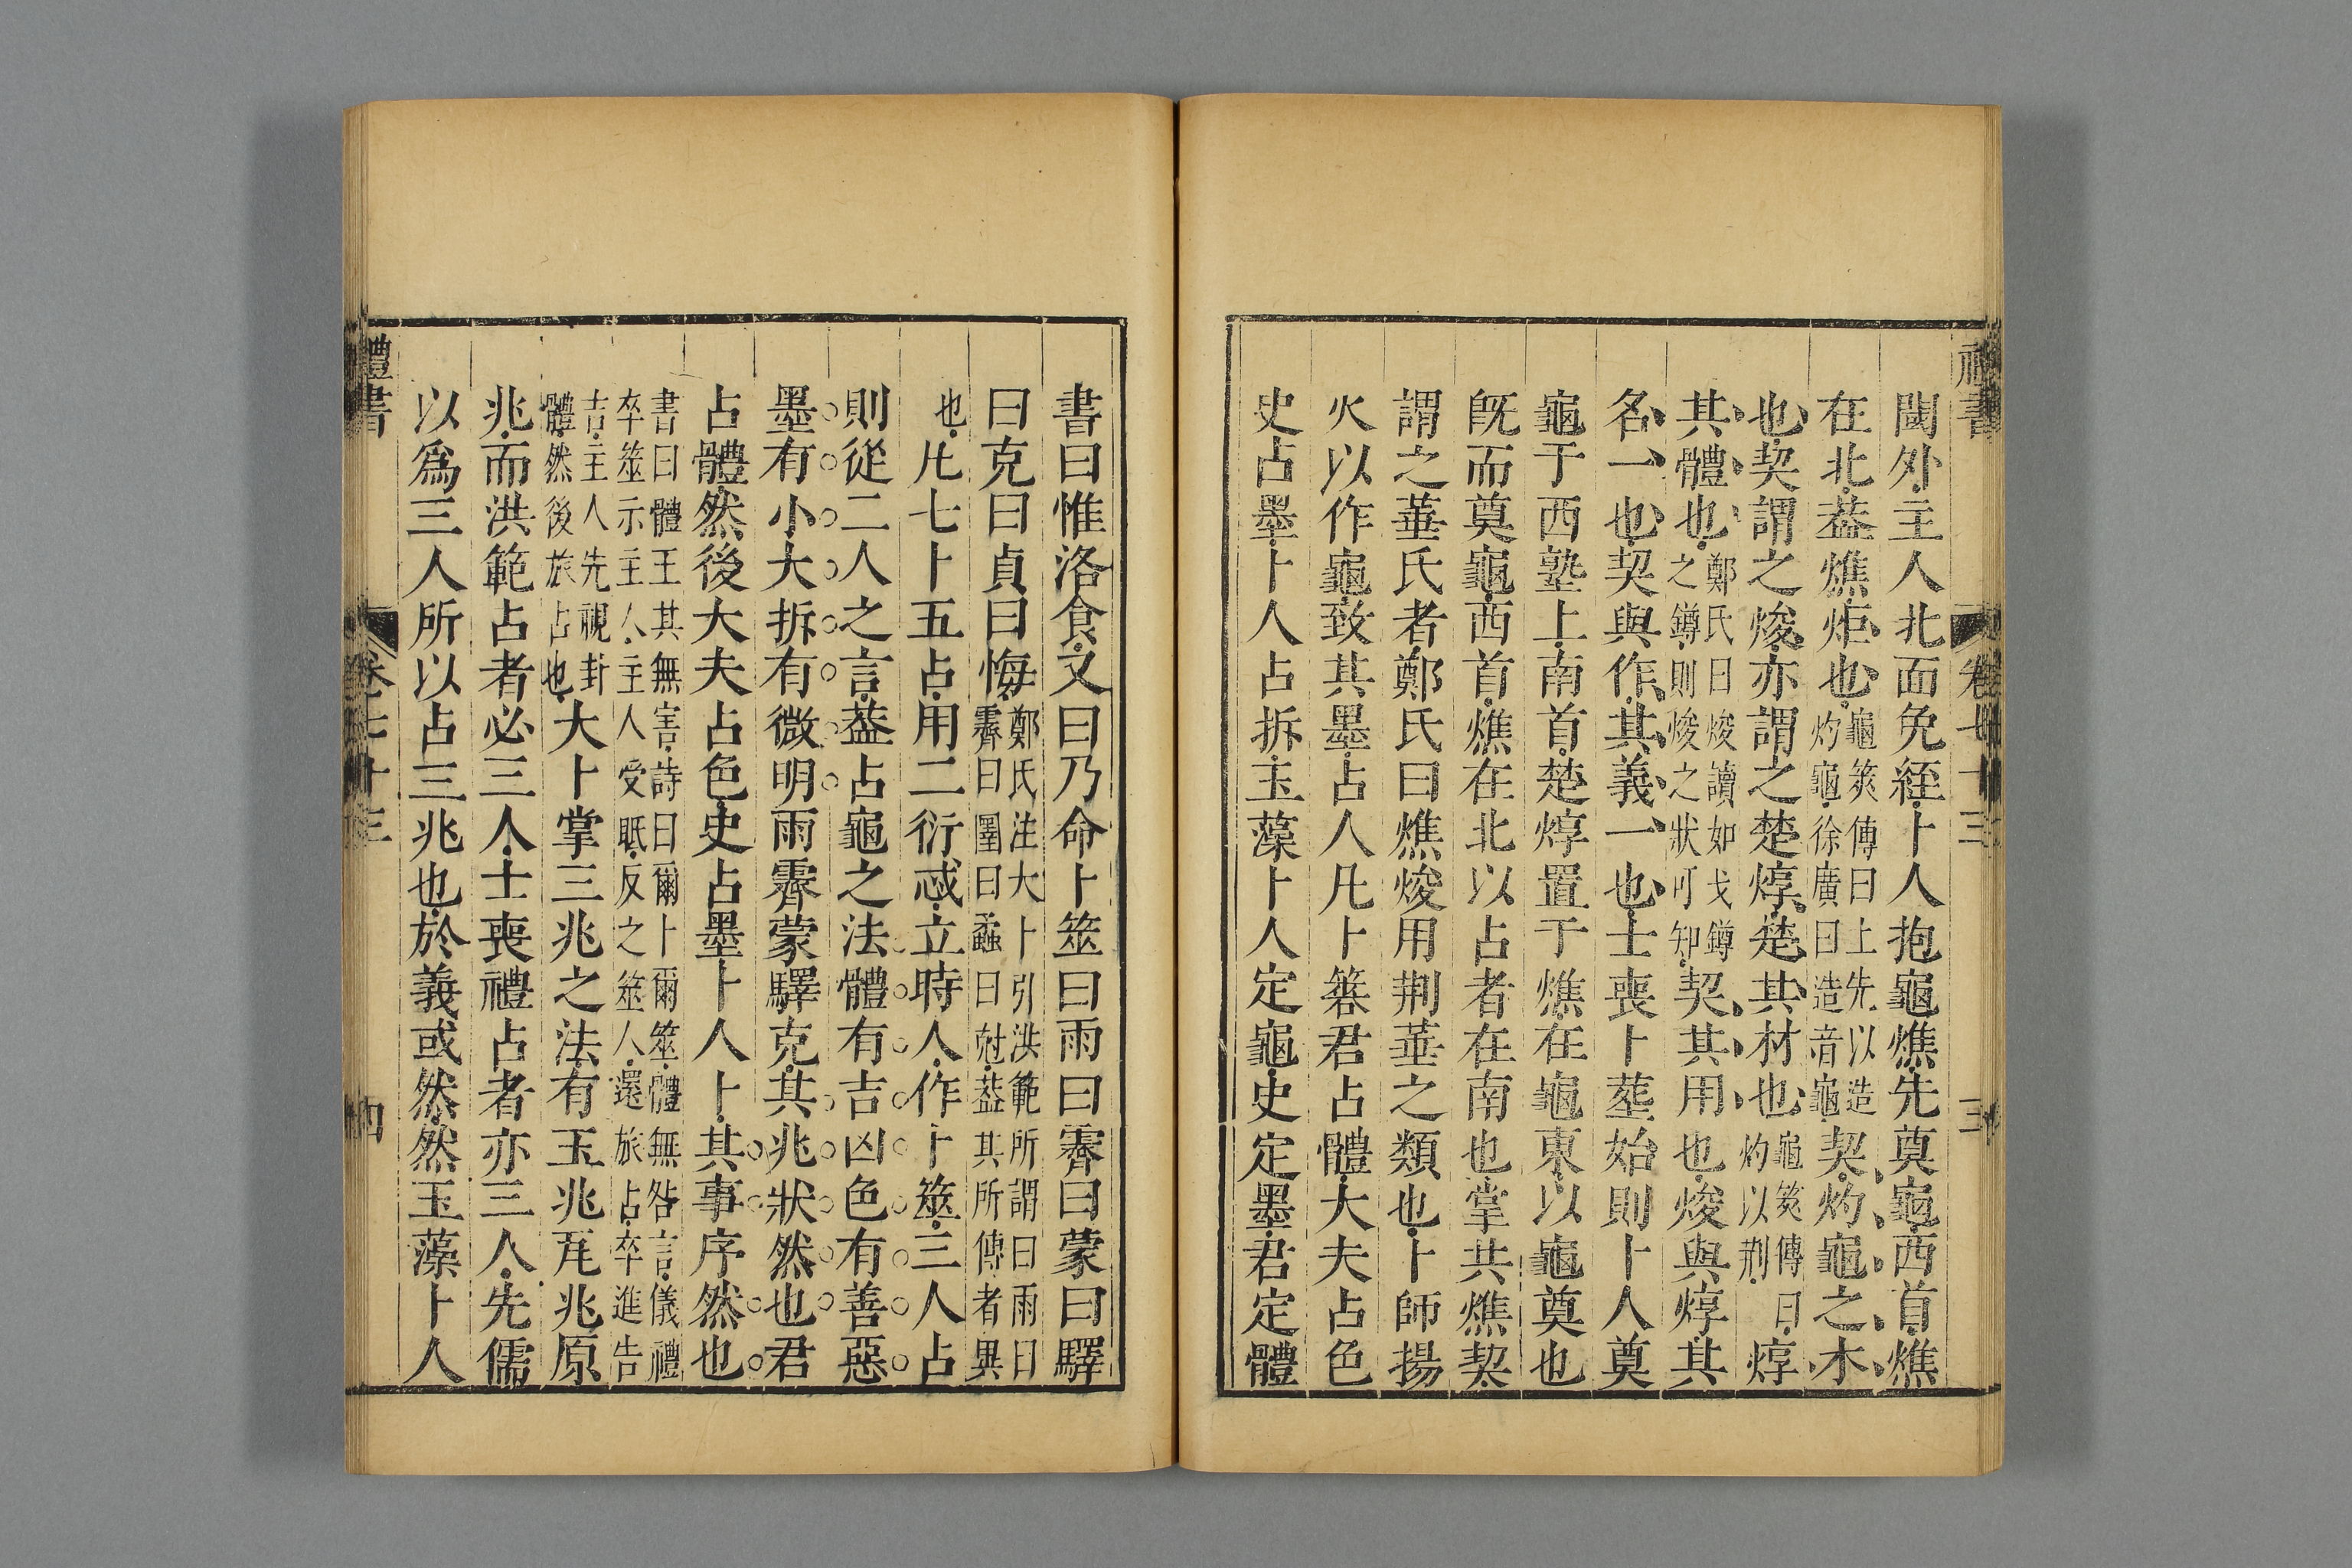 禮書 卷七十三 三
閾外主人北面免絰卜人抱龜燋先奠龜西首燋
在北葢燋炬也龜筴傳曰上先以造灼龜徐廣曰造音竈契灼龜之木
也契謂之焌亦謂之楚焞楚其材也龜筴傳曰灼以荆焞
其體也鄭氏曰焌讀如戈鐏之鐏則焌之狀可知契其用也焌與焞其
名一也契與作其義一也士喪卜葬始則卜人奠
龜于西塾上南首楚焞置于燋在龜東以龜奠也
旣而奠龜西首燋在北以占者在南也掌共燋契
謂之菙氏者鄭氏曰燋焌用荆菙之類也卜師揚
火以作龜致其墨占人凡卜簭君占體大夫占色
史占墨卜人占拆玉藻卜人定龜史定墨君定體
書曰惟洛食又曰乃命卜筮曰雨曰霽曰蒙曰驛
曰克曰貞曰悔鄭氏注大卜引洪範所謂曰雨曰霽曰圛曰蟊曰尅葢其所傳者異
也凡七卜五占用二衍忒立時人作卜筮三人占
則從二人之言葢占龜之法體有吉凶色有善惡
墨有小大拆有微明雨霽蒙驛克其兆狀然也君
占體然後大夫占色史占墨卜人卜其事序然也
書曰體王其無害詩曰爾卜爾筮體無咎言儀禮卒筮示主人主人受眡反之筮人還旅占卒進告
吉主人先視卦體然後旅占也大卜掌三兆之法有玉兆瓦兆原
兆而洪範占者必三人士喪禮占者亦三人先儒
以爲三人所以占三兆也於義或然然玉藻卜人
禮書 卷七十三 四